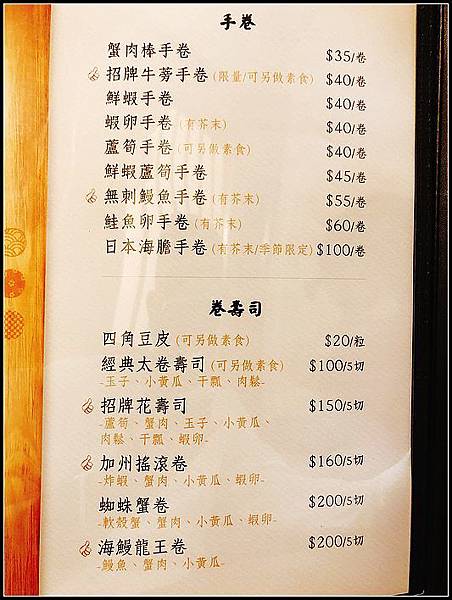 手卷
蟹肉棒手卷 $35/卷
招牌牛蒡手卷(限量/可另做素食) $40/卷
鮮蝦手卷 $40/卷
蝦卵手卷(有芥末) $40/卷
蘆筍手卷(可另做素食) $40/卷
鮮蝦蘆筍手卷 $45/卷
無刺鰻魚手卷(有芥末) $55/卷
鮭魚卵手卷(有芥末) $60/卷
日本海膽手卷(有芥末/季節限定) $100/卷
卷壽司
四角豆皮(可另做素食) $20/粒
經典太卷壽司(可另做素食) $100/5切
-玉子、小黃瓜、干瓢、肉鬆-
招牌花壽司 $150/5切
-蘆筍、蟹肉、玉子、小黃瓜、
肉鬆、干瓢、蝦卵-
加州搖滾卷 $160/5切
-炸蝦、蟹肉、小黃瓜、蝦卵-
蜘蛛蟹卷 $200/5切
-軟殼蟹、蟹肉、小黃瓜、蝦卵-
海鰻龍王卷 $200/5切
-鰻魚、蟹肉、小黃瓜-